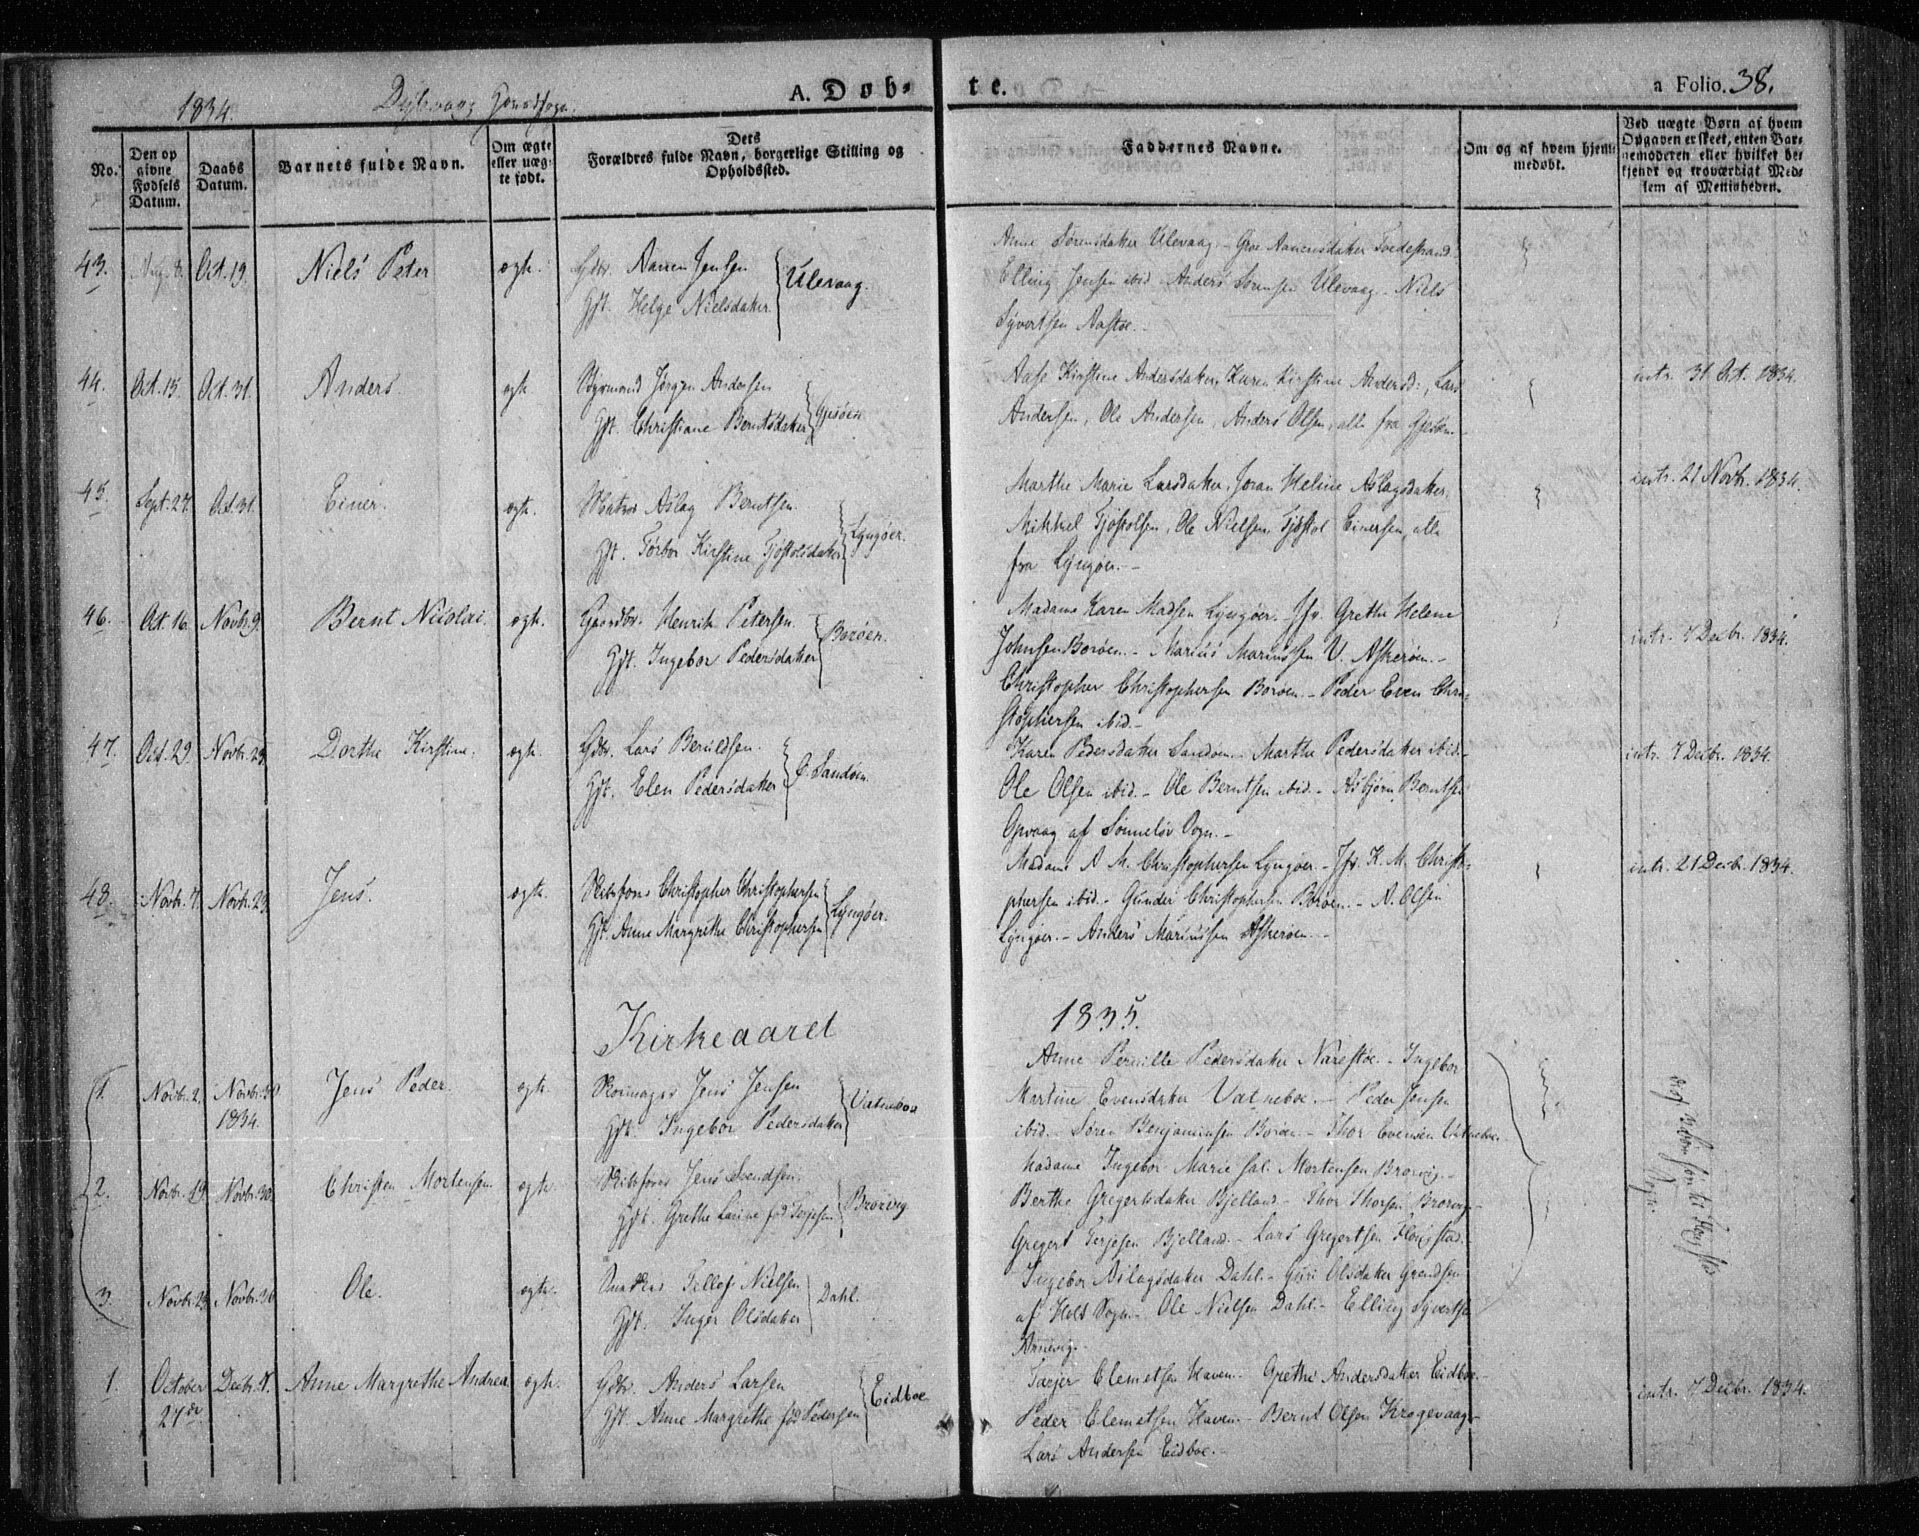 1834. Dybvaag Hovedsogn. A. Døb-
te. a Folio. 38.
No.
Den op
givne
Fødsels
Datum.
Daabs
Datum.
Barnets fulde Navn.
Om ægte
eller uæg-
te født.
Dets
Forældres fulde Navn, borgerlige Stilling og
Opholdssted.
Faddernes Navne.
Om og af hvem hjem
medøbt.
Ved uægte Børn af hvem
Opgaven er skeet, enten Bar-
nemoderen eller hvilket be-
kjendt og troværdigt Med-
lem af Menigheden.
43. Oct. 19. Niels Peter ægte. Gdbr. Aanen Jensen
Hst. Helge Nielsdatter
Ulevaag.
Anne Sørensdatter Ulevaag - Groe Aanensdatter Tvedestrand
Elling Jensen ibid - Anders Sørensen Ulevaag - Niels
Syvertsen Aastøe.
44. Oct. 15. Oct. 31. Anders ægte Jørgen Andersen
Hst. Christiane Berntsdatter
Gjesøen
Aase Kirstine Andersdatter, Karen Kirstine Andersd:, Lars
Andersen, Ole Andersen, Anders Olsen, alle fra Gjesøen
intr. 31 Oct. 1834.
45. Sept. 27. Oct. 31. Einer ægte. Matros Aslag Berntsen
Hst. Torbor Kirstine Tjøstolsdatter
Lyngøer.
Marthe Marie Larsdatter, Joran Heline Aslagsdatter,
Mikkel Tjøstolsen, Ole Nielsen, Tjøstol Einersen, alle
fra Lyngøer.-
intr. 21 Novbr. 1834.
46. Oct. 16. Novbr. 9. Bernt Nicolai. ægte. Gaardbr. Henrik Petersen
Hst. Ingebor Pedersdatter
Borøen.
Madame Karen Madsen Lyngøer - Jfr. Grethe Helene
Johnsen Borøen - Marius Mariussen V. Askerøen.-
Christopher Christophersen Borøen.- Peder Even Chri-
stophersen ibid.-
intr. 7 Decbr. 1834.
47. Oct. 29. Novbr. 23. Dorthe Kirstine. ægte. Gdbr. Lars Berntsen
Hst. Elen Pedersdatter
Sandøen
Karen Pedersdatter Sandøen - Marthe Pedersdatter ibid.-
Ole Olsen ibid.- Ole Berntsen ibid.- Asbjørn Berntsen
af Sønneløv Sogn.-
intr. 7 Decbr. 1834.
48. Novbr. 7. Novbr. 23. Jens. ægte. Skibsfører Christopher Christophersen
Hst. Anne Margrethe Christophersen
Lyngøer.
Madame A. M. Christophersen Lyngøer - Jfr. K. M. Christo-
phersen ibid - Gunder Christophersen Borøen - A. Olsen
Lyngøer.- Anders Mariussen Askerøen -
intr. 21 Decbr. 1834.
Kirkeaaret 1835.
1. Novbr. 2. Novbr. 30
1834.
Jens Peder. ægte. Jens Jensen
Hst. Ingebor Pedersdatter
Vatneboe
Anne Pernille Pedersdatter Narestøe - Ingebor
Martine Evensdatter Vatneboe - Peder Jensen
ibid.- Søren Benjaminsen Borøen - Thor Evensen Vatneboe.
2. Novbr. 19. Novbr. 30. Christen Mortensen ægte. Skibsfører Jens Svendsen
Hst. Grethe Laurine fød Terjesen
Brovig
Madame Ingebor Marie sal. Mortensen Browig
Berthe Gregertsdatter Bjelland - Thor Thorsen Browig
Gregert Terjesen Bjelland.- Lars Gregertsen
3. Novbr. 23. Novbr. 30. Ole. ægte. Tellef Nielsen
Hst. Inger Olsdatter
Dahl.
Ingebor Aslagsdatter Dahl - Guri Olsdatter
af Holt Sogn - Ole Nielsen Dahl - Elling Syvertsen
Arnevig.
1. October
27de
Decbr. 7. Anne Margrethe Andrea ægte. Gdbr. Anders Larsen
Hst. Anne Margrethe fød Pedersen
Eidboe
Terjer Clemetsen Haven.- Grethe Andersdatter Eidboe -
Peder Clemetsen Haven - Bernt Olsen Krogevaag -
Lars Andersen Eidboe.-
intr. 7 Decbr. 1834.